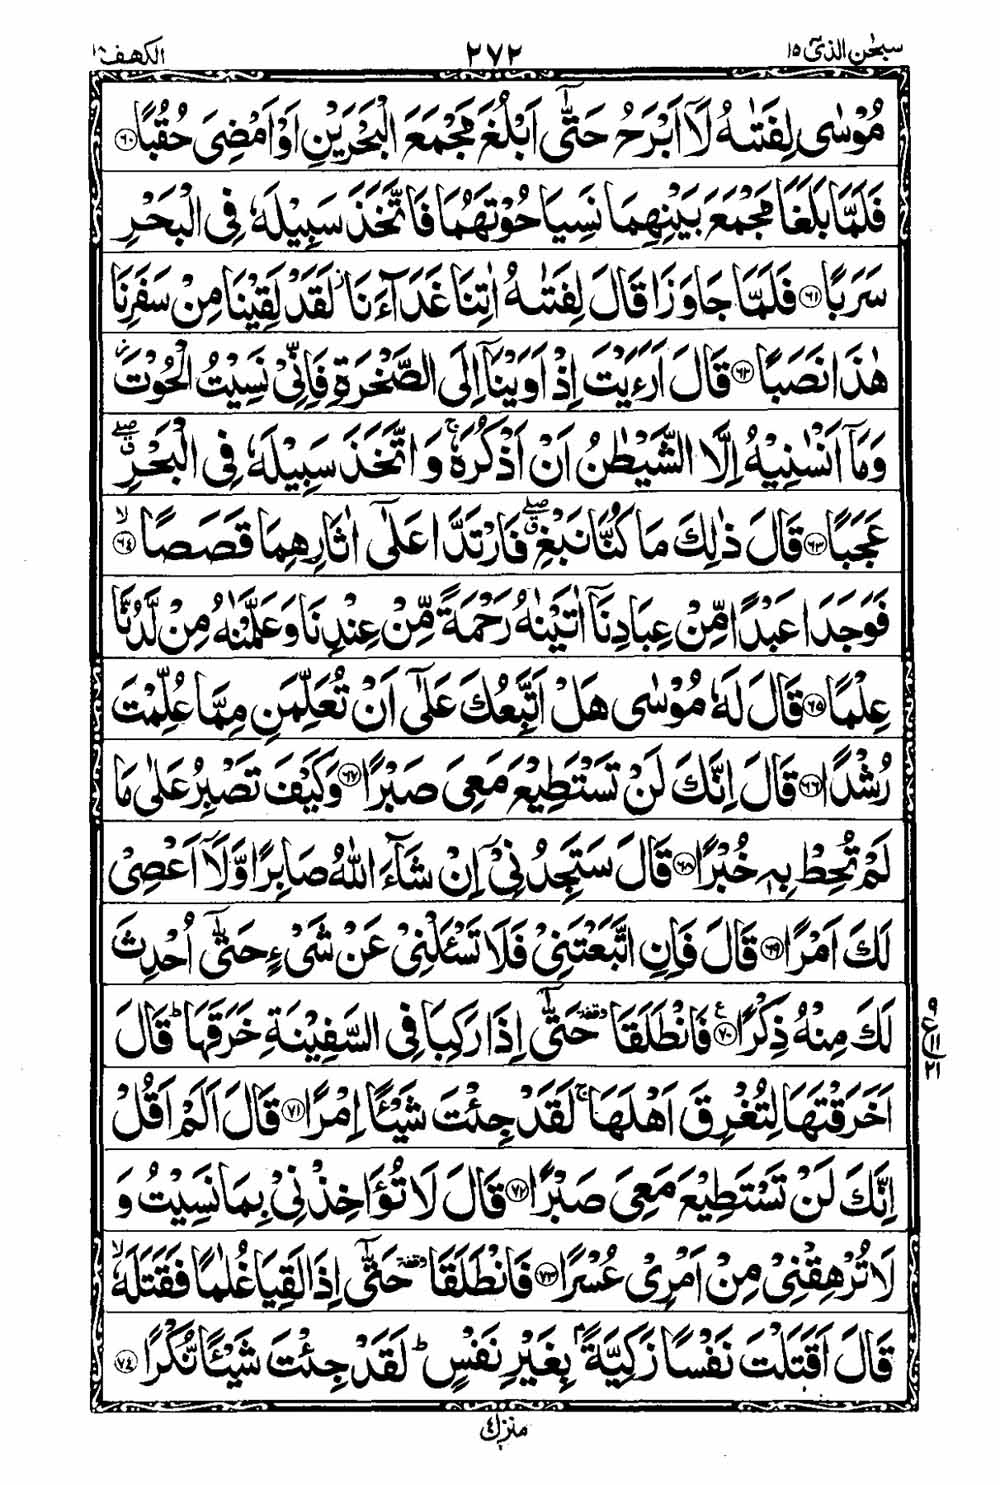 سبحٰن الذی ۱۵ ۲۷۲ الکهف ۱۸
مُوْسٰى لِفَتٰىهُ لَاۤ اَبْرَحُ حَتّٰۤى اَبْلُغَ مَجْمَعَ الْبَحْرَیْنِ اَوْ اَمْضِیَ حُقُبًا ۶۰
فَلَمَّا بَلَغَا مَجْمَعَ بَیْنِهِمَا نَسِیَا حُوْتَهُمَا فَاتَّخَذَ سَبِیْلَهٗ فِی الْبَحْرِ
سَرَبًا ۶۱ فَلَمَّا جَاوَزَا قَالَ لِفَتٰىهُ اٰتِنَا غَدَآءَنَا ز لَقَدْ لَقِیْنَا مِنْ سَفَرِنَا
هٰذَا نَصَبًا ۶۲ قَالَ اَرَءَیْتَ اِذْ اَوَیْنَاۤ اِلَى الصَّخْرَةِ فَاِنِّیْ نَسِیْتُ الْحُوْتَ ز
وَمَاۤ اَنْسٰىنِیْهُ اِلَّا الشَّیْطٰنُ اَنْ اَذْكُرَهٗ ۚ وَاتَّخَذَ سَبِیْلَهٗ فِی الْبَحْرِ ۖق
عَجَبًا ۶۳ قَالَ ذٰلِكَ مَا كُنَّا نَبْغِ ۖق فَارْتَدَّا عَلٰۤى اٰثَارِهِمَا قَصَصًا ۙ ۶۴
فَوَجَدَا عَبْدًا مِّنْ عِبَادِنَاۤ اٰتَیْنٰهُ رَحْمَةً مِّنْ عِنْدِنَا وَعَلَّمْنٰهُ مِنْ لَّدُنَّا
عِلْمًا ۶۵ قَالَ لَهٗ مُوْسٰى هَلْ اَتَّبِعُكَ عَلٰۤى اَنْ تُعَلِّمَنِ مِمَّا عُلِّمْتَ
رُشْدًا ۶۶ قَالَ اِنَّكَ لَنْ تَسْتَطِیْعَ مَعِیَ صَبْرًا ۶۷ وَكَیْفَ تَصْبِرُ عَلٰى مَا
لَمْ تُحِطْ بِهٖ خُبْرًا ۶۸ قَالَ سَتَجِدُنِیْۤ اِنْ شَآءَ اللّٰهُ صَابِرًا وَّلَاۤ اَعْصِیْ
لَكَ اَمْرًا ۶۹ قَالَ فَاِنِ اتَّبَعْتَنِیْ فَلَا تَسْـَٔلْنِیْ عَنْ شَیْءٍ حَتّٰۤى اُحْدِثَ
لَكَ مِنْهُ ذِكْرًا ع ۷۰ فَانْطَلَقَا وقفة حَتّٰۤى اِذَا رَكِبَا فِی السَّفِیْنَةِ خَرَقَهَا ؕ قَالَ
۹ ع ۱۱ ۲۱
اَخَرَقْتَهَا لِتُغْرِقَ اَهْلَهَا ۚ لَقَدْ جِئْتَ شَیْـًٔا اِمْرًا ۷۱ قَالَ اَلَمْ اَقُلْ
اِنَّكَ لَنْ تَسْتَطِیْعَ مَعِیَ صَبْرًا ۷۲ قَالَ لَا تُؤَاخِذْنِیْ بِمَا نَسِیْتُ وَ
لَا تُرْهِقْنِیْ مِنْ اَمْرِیْ عُسْرًا ۷۳ فَانْطَلَقَا وقفة حَتّٰۤى اِذَا لَقِیَا غُلٰمًا فَقَتَلَهٗ ۙ
قَالَ اَقَتَلْتَ نَفْسًا زَكِیَّةًۢ بِغَیْرِ نَفْسٍ ؕ لَقَدْ جِئْتَ شَیْـًٔا نُّكْرًا ۷۴
منزل ۴